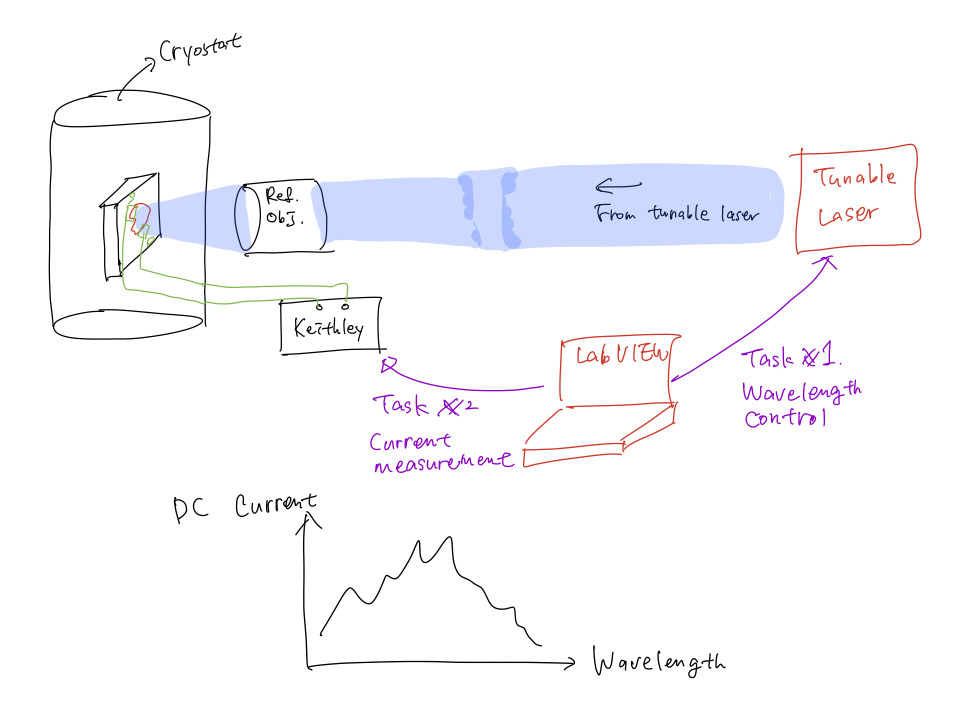 Cryostat
Ref.
Obj.
From tunable laser
Tunable
Laser
Keithley
LabVIEW
Task #1.
Wavelength
control
Task #2
Current
measurement
DC Current
Wavelength